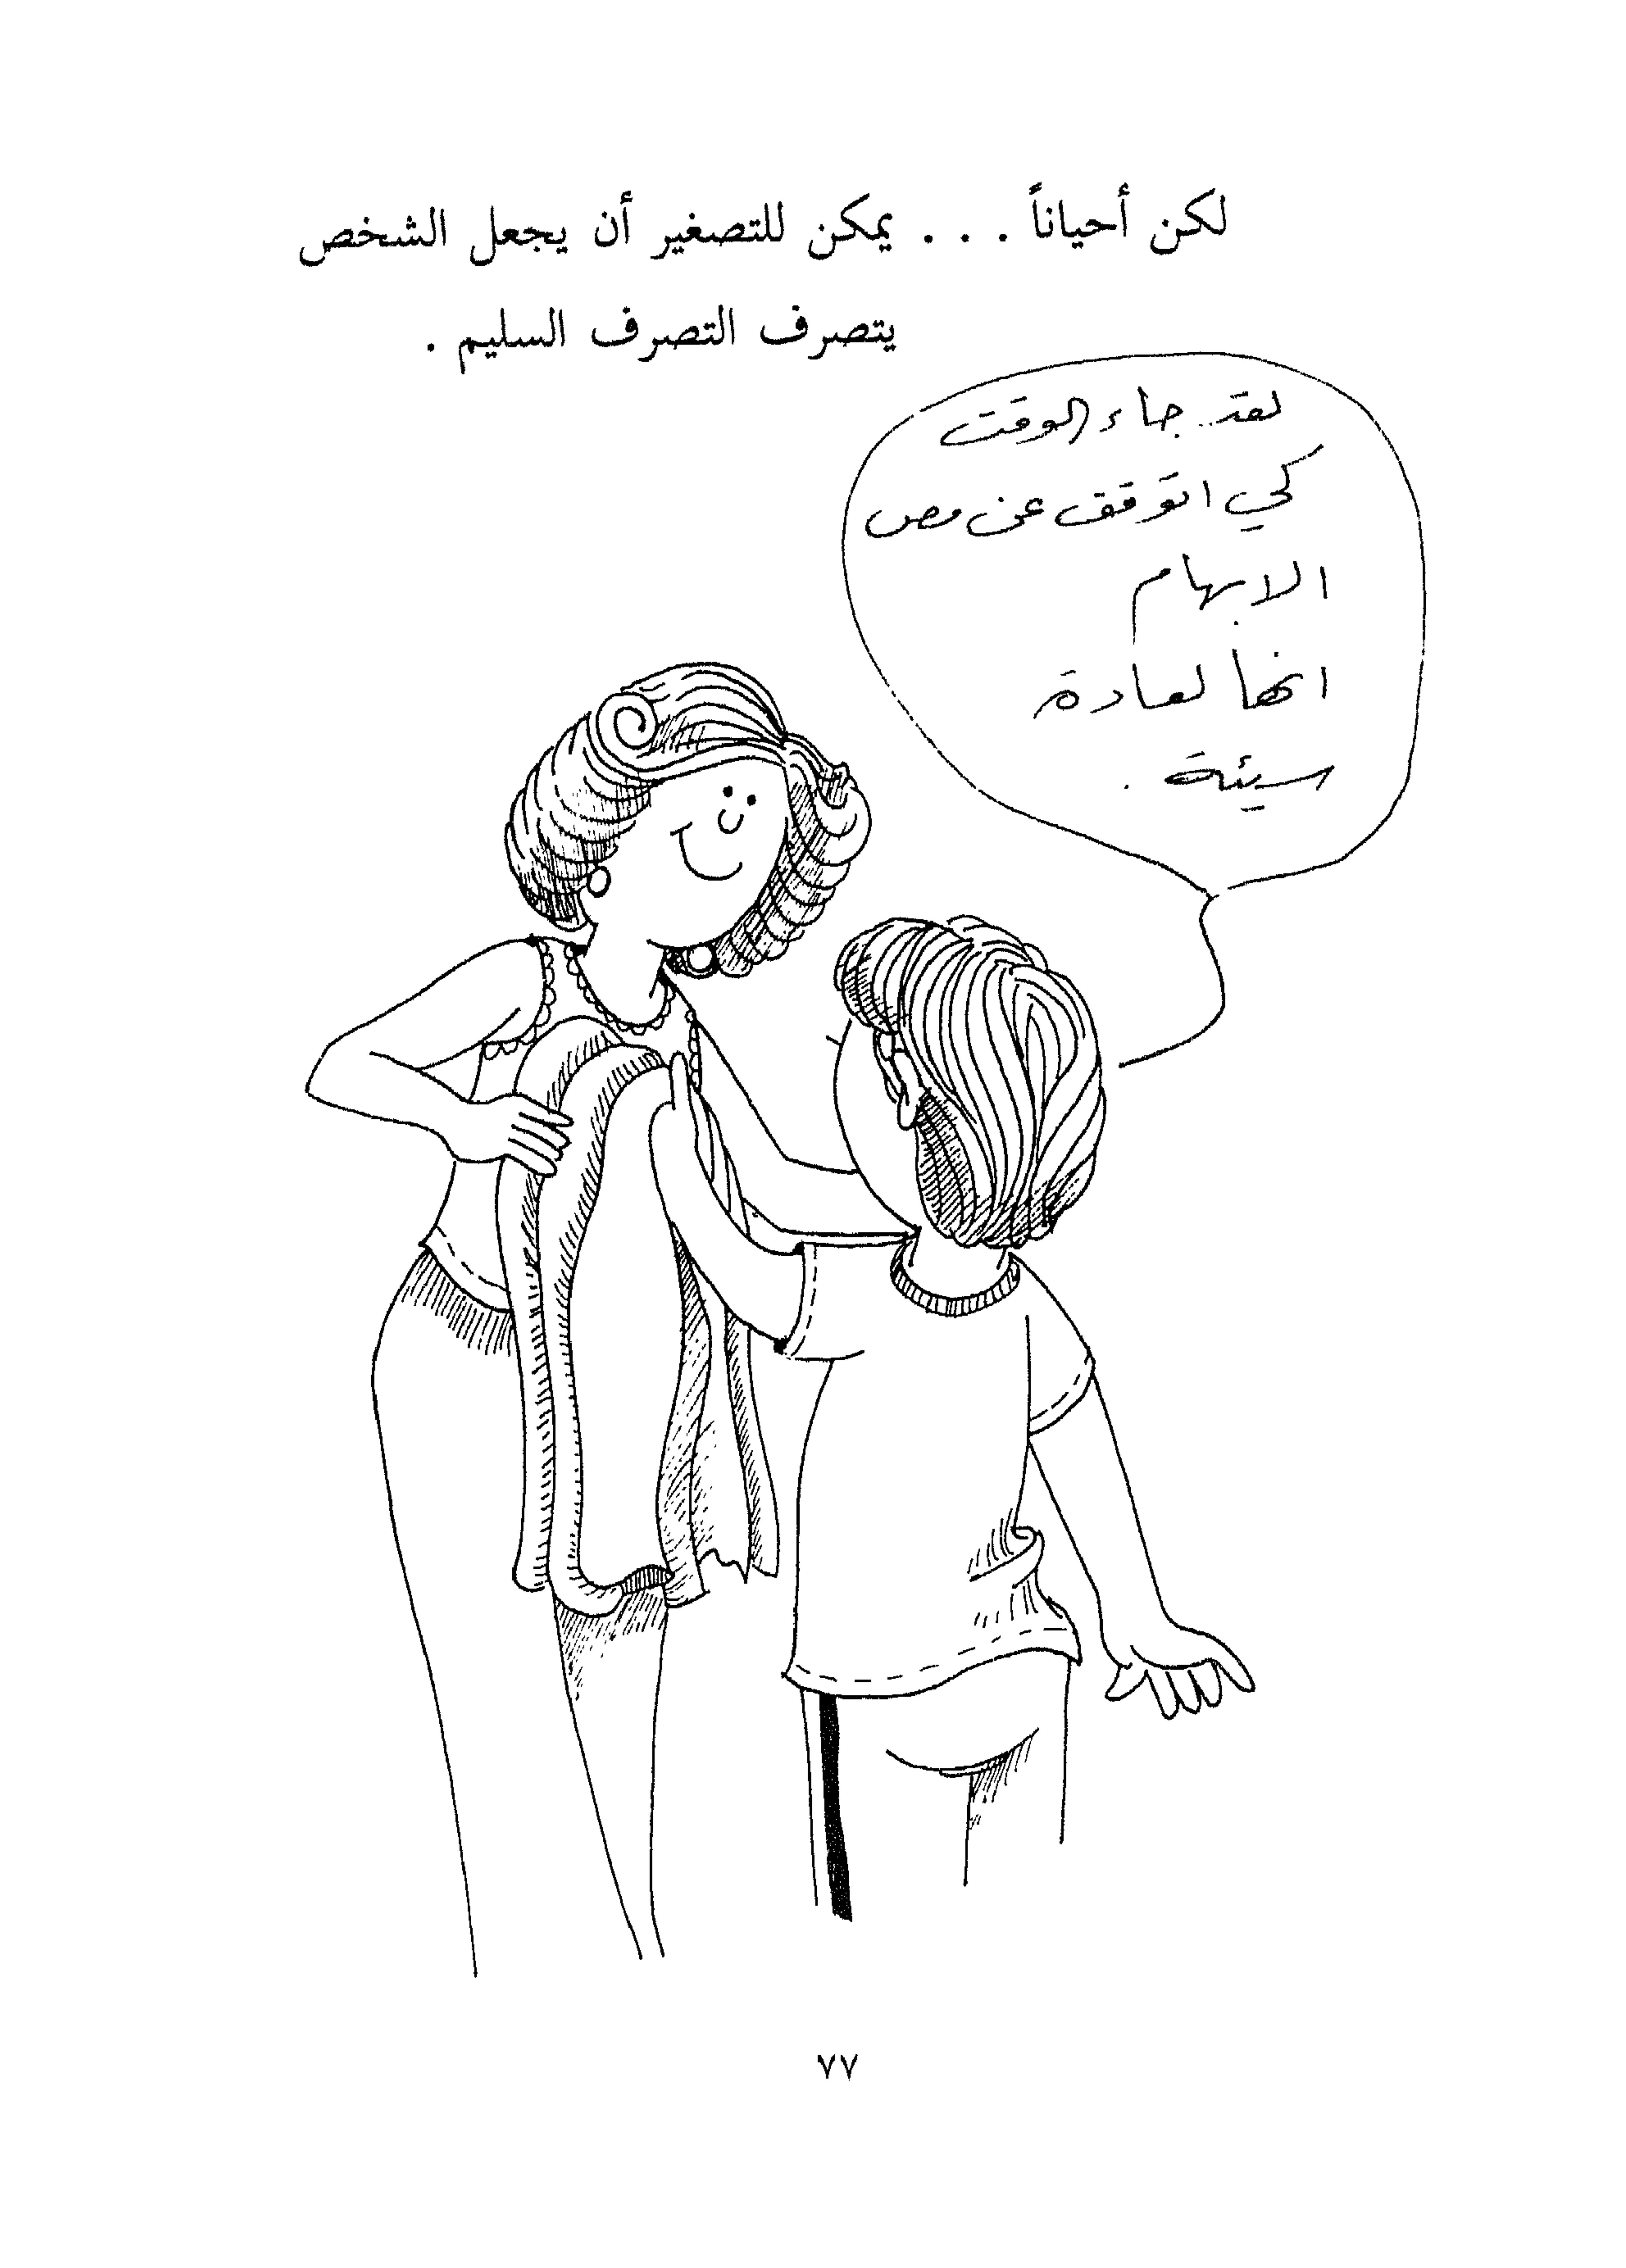 لكن أحياناً . . . يمكن للتصغير أن يجعل الشخص
يتصرف التصرف السليم .
لقد جاء الوقت
كي اتوقف عن مص
الابهام
انها لعادة
سيئة .
٧٧